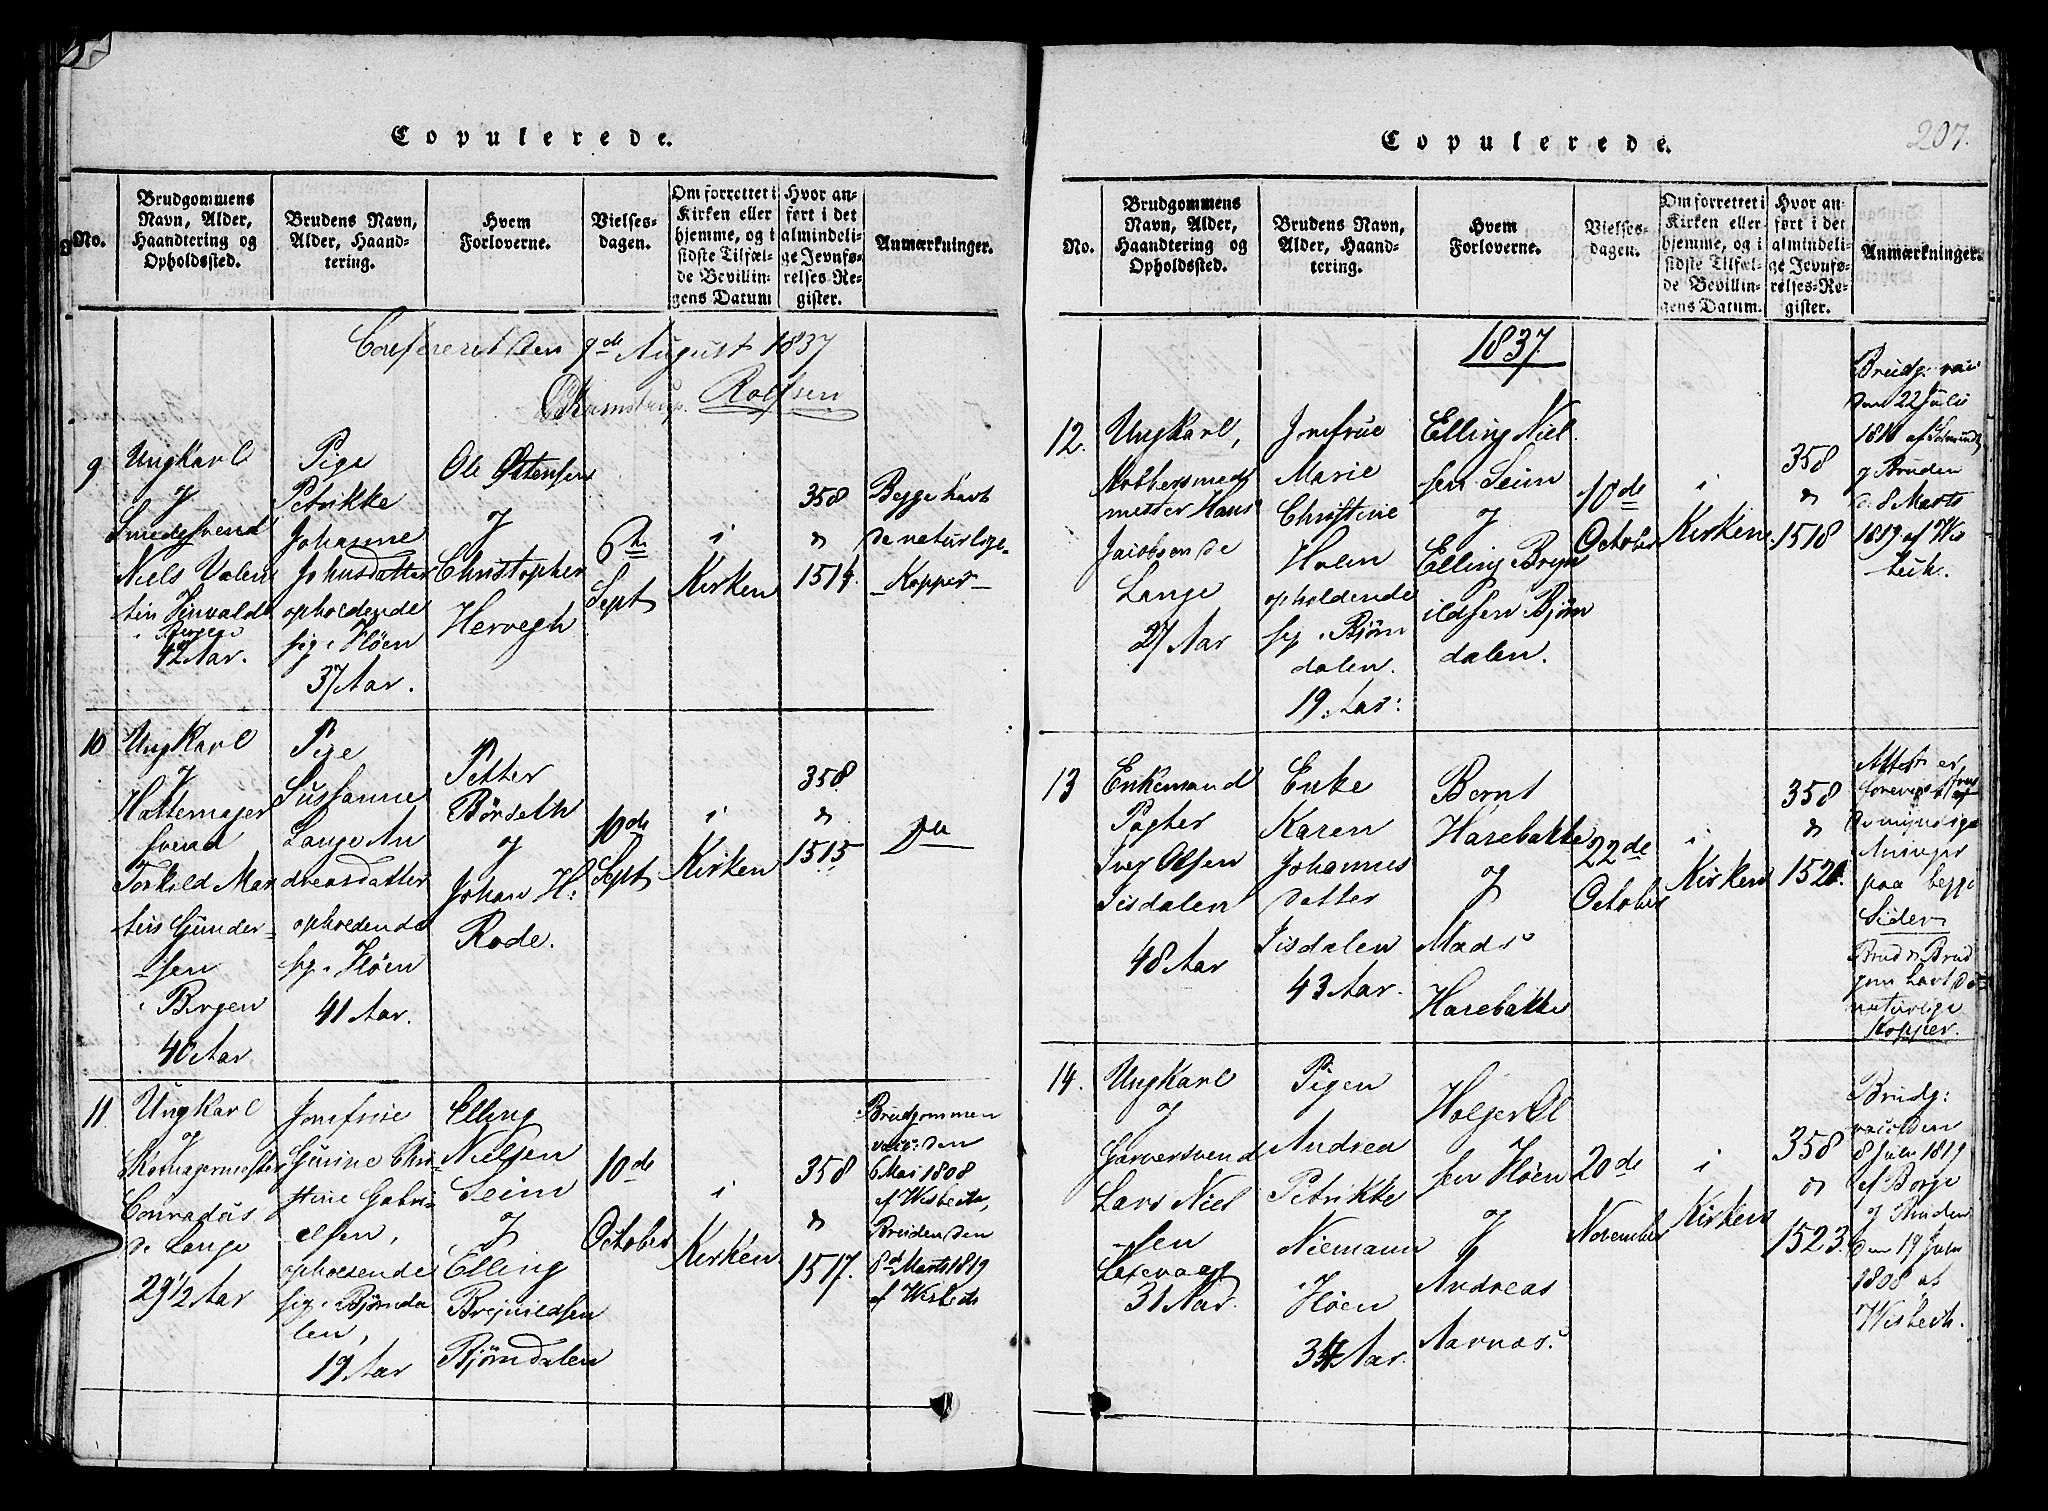 Copulerede.
No.
Brudgommens
Navn, Alder,
Haandtering og
Opholdssted.
Brudens Navn,
Alder, Haand-
tering.
Hvem
Forloverne.
Vielses-
dagen.
Om forrettet i
Kirken eller
hjemme, og i
sidste Tilfæl-
de Bevillin-
gens Datum
Hvor an-
ført i det
almindeli-
ge Jevnfø-
relses-Re-
gister.
Anmærkninger.
Confereret den 9de August 1837
Rolfsen
9
Ungkarl
og
Smedesvend
Niels Valen
tin
i Bergen
42 Aar.
Pige
Petrikke
Johanne
Johnsdatter
opholdende
sig i Fløen
37 Aar.
Ole Østensen
og
Christopher
Hervegh
6te
Sept
i
Kirken
358
og
1514.
Begge havt
de naturlige
Kopper
10
Ungkarl
og
Hattemager
svend
Torkild Mar
tin Gunder-
sen
i Bergen
40 Aar
Pige
Sussanne
Lange An
dreasdatter
opholdende
sig i Fløen
41 Aar.
Petter
Børdseth
og
Johan H:
Rode.
10de
Sept
i
Kirken
358
og
1515
Do
11
Ungkarl
og
Conradus
de Lange
29 1/2 Aar
Jomfrue
Gurine Chri-
stine Gabri-
elsen,
opholdende
sig i Bjørnda
len,
19 Aar
Elling
Nielsen
Seim
og
Elling
Brynildsen
Bjørndalen
10de
October
i
Kirken
358
og
1517.
Brudgommen
vacc: den
6 Mai 1808
af Wisbech,
Bruden den
8de Marts 1819
af Wisbech
Copulerede.
207.
No.
Brudgommens
Navn, Alder,
Haandtering og
Opholdssted.
Brudens Navn,
Alder, Haand-
tering.
Hvem
Forloverne.
Vielses-
dagen.
Om forrettet i
Kirken eller
hjemme, og i
sidste Tilfæl-
de Bevillin-
gens Datum.
Hvor an-
ført i det
almindeli-
ge Jevnfø-
relses-Re-
gister.
Anmærkninger.
1837.
12.
Ungkarl,
Kobbersmed
mester Hans
Jacobsen de
Lange
27 Aar
Jomfrue
Marie
Christine
Holm
opholdende
sig i Bjørn
dalen.
19 Aar:
Elling Niel
sen Seim
og
Elling Bryn
ildsen Bjørn
dalen.
10de
October
i
Kirken
358
og
1518
Brudg: vac
den 22 Julii
af
og Bruden
d. 8 Marts
1819 af Wis
bech.
13
Enkemand
Pagter
Iver Olsen
Isdalen
48 Aar
Enke
Karen
Johannes
datter
Isdalen
43 Aar.
Bernt
Harebakke
og
Mads
Harebakke
22de
October
i
Kirken
358
og
Attest er
forevist
paa begge
Sider
Brud og Brud
gom havt de
naturlige
Kopper.
14.
Ungkarl
og
Garversvend
Lars Niel
sen
Laxevaag
31 Aar.
Pigen
Andrea
Petrikke
Niemann
i
Fløen
34 Aar.
Holger Ol
sen Fløen
og
Andreas
Aarnæs.
20de
November
i
Kirken
358
og
1523.
Brudg:
vac: den
8 Julii 1819
af Borge
og Bruden
den 19 Juni
1808 af
Wisbech.